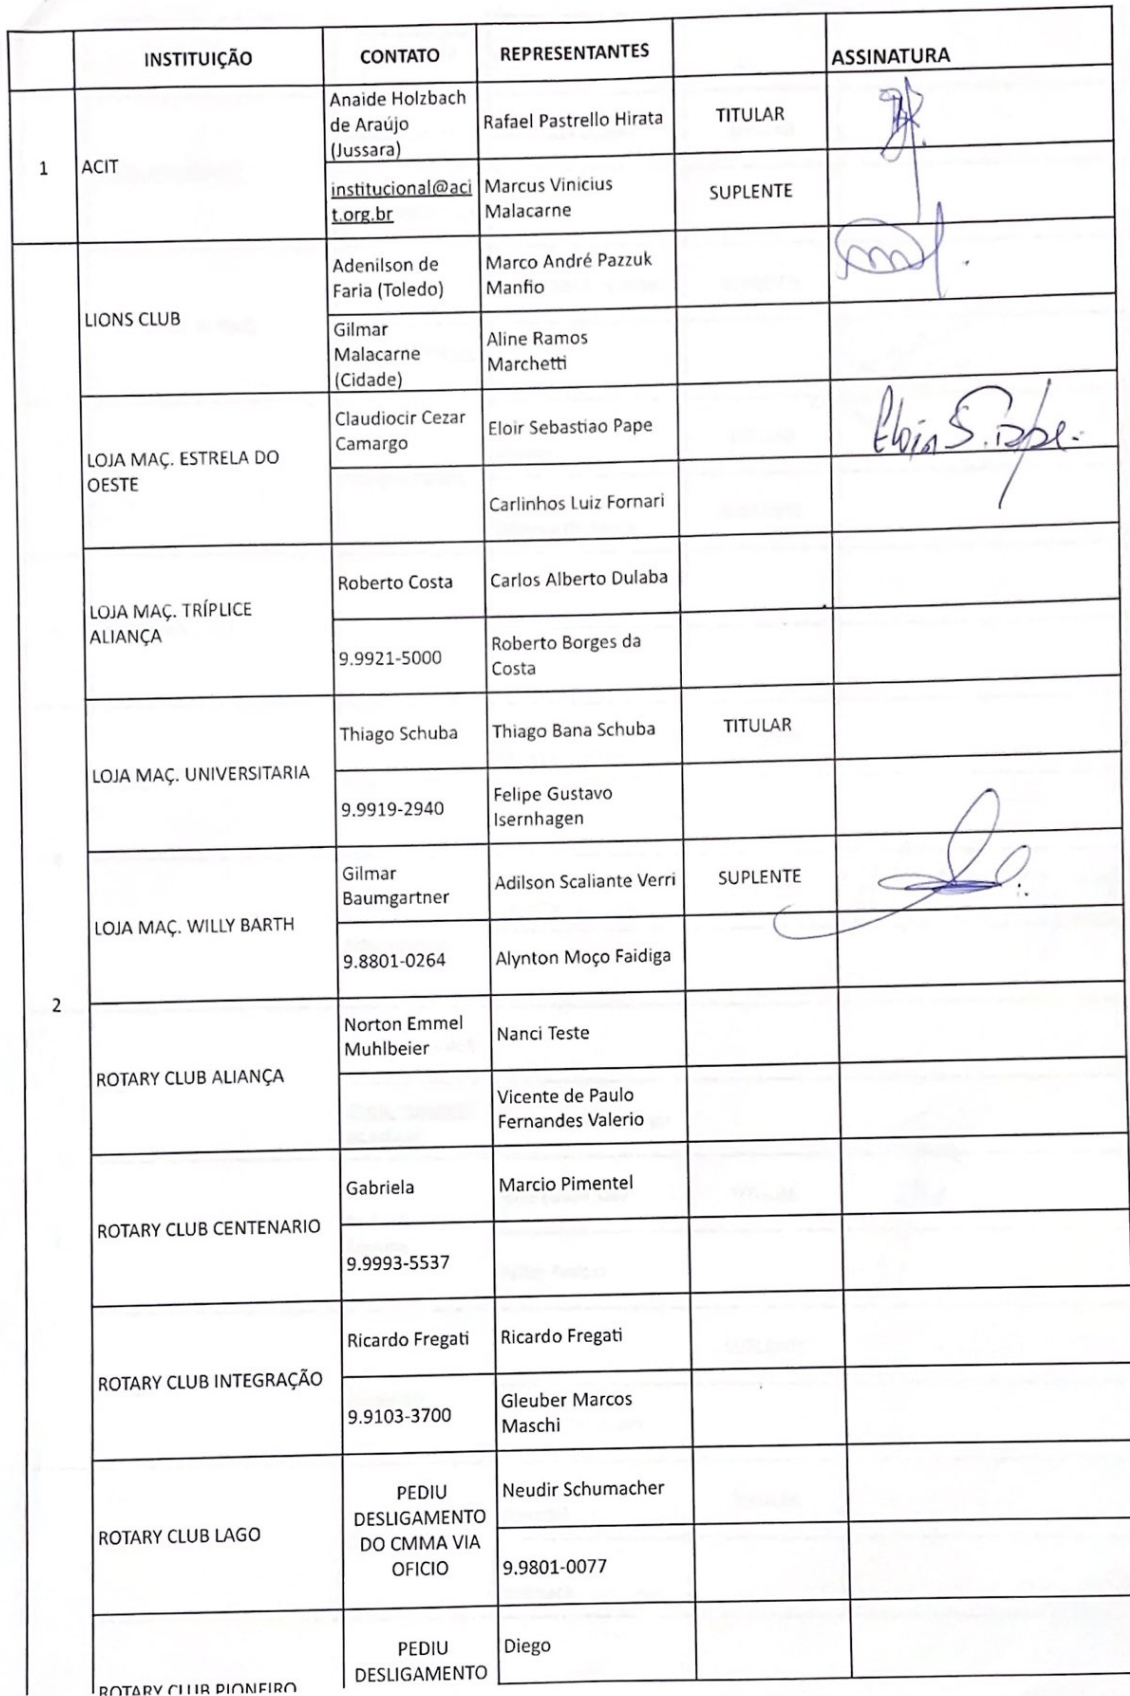 INSTITUIÇÃO CONTATO REPRESENTANTES ASSINATURA
1 ACIT
Anaide Holzbach
de Araújo
(Jussara)
Rafael Pastrello Hirata
TITULAR
institucional@aci
t.org.br
Marcus Vinicius
Malacarne
SUPLENTE
2
LIONS CLUB
Adenilson de
Faria (Toledo)
Marco André Pazzuk
Manfio
Gilmar
Malacarne
(Cidade)
Aline Ramos
Marchetti
LOJA MAÇ. ESTRELA DO
OESTE
Claudiocir Cezar
Camargo
Eloir Sebastiao Pape
Eloir S. Pape
Carlinhos Luiz Fornari
LOJA MAÇ. TRÍPLICE
ALIANÇA
Roberto Costa
Carlos Alberto Dulaba
9.9921-5000
Roberto Borges da
Costa
LOJA MAÇ. UNIVERSITARIA
Thiago Schuba
Thiago Bana Schuba
TITULAR
9.9919-2940
Felipe Gustavo
Isernhagen
LOJA MAÇ. WILLY BARTH
Gilmar
Baumgartner
Adilson Scaliante Verri
SUPLENTE
9.8801-0264
Alynton Moço Faidiga
ROTARY CLUB ALIANÇA
Norton Emmel
Muhlbeier
Nanci Teste
Vicente de Paulo
Fernandes Valerio
ROTARY CLUB CENTENARIO
Gabriela
Marcio Pimentel
9.9993-5537
ROTARY CLUB INTEGRAÇÃO
Ricardo Fregati
Ricardo Fregati
9.9103-3700
Gleuber Marcos
Maschi
ROTARY CLUB LAGO
PEDIU
DESLIGAMENTO
DO CMMA VIA
OFICIO
Neudir Schumacher
9.9801-0077
ROTARY CLUB PIONEIRO
PEDIU
DESLIGAMENTO
Diego